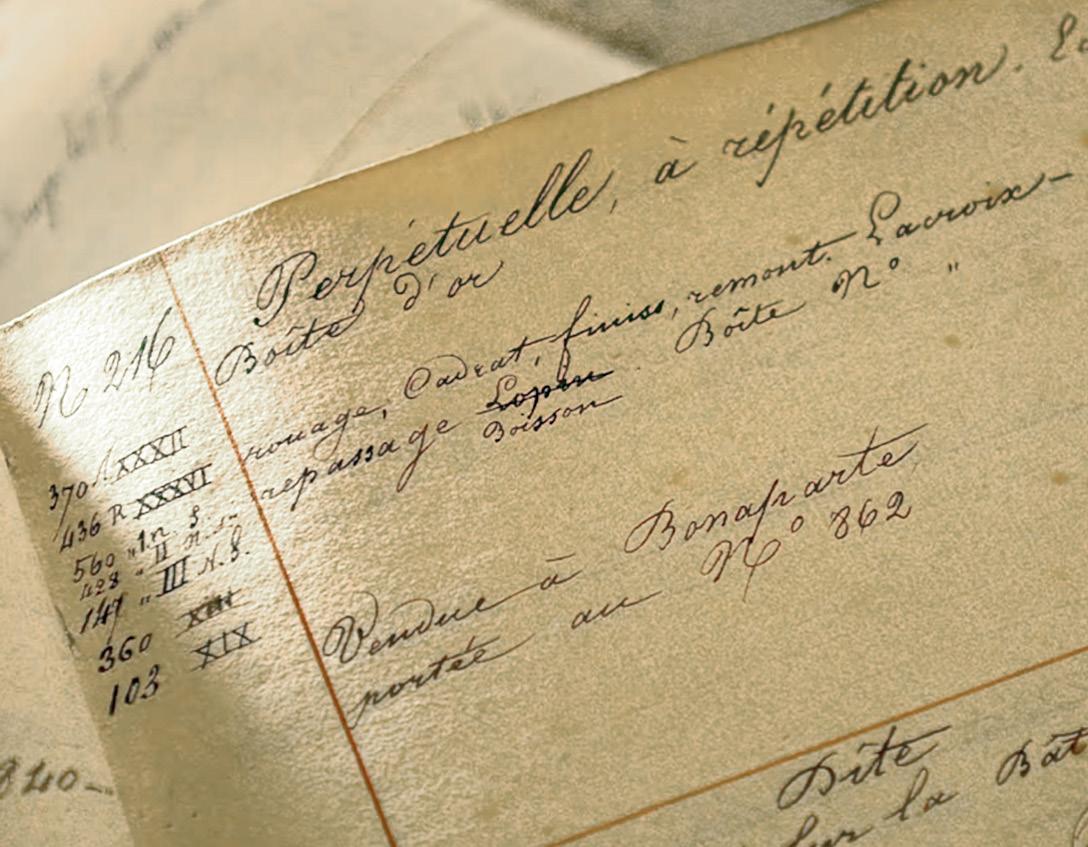 N 216
Perpétuelle, à répétition.
Boîte d'or
rouage, Cadrat, finiss, remont. Lacroix -
repassage Lopin Boîte No "
Boisson
Vendue à Bonaparte
portée au No 862
370 XXXII
436 R XXXVI
560 " In S
423 " II
147 " III N.S.
360 XIII
103 XIX
840
Dite
Sur la Bât